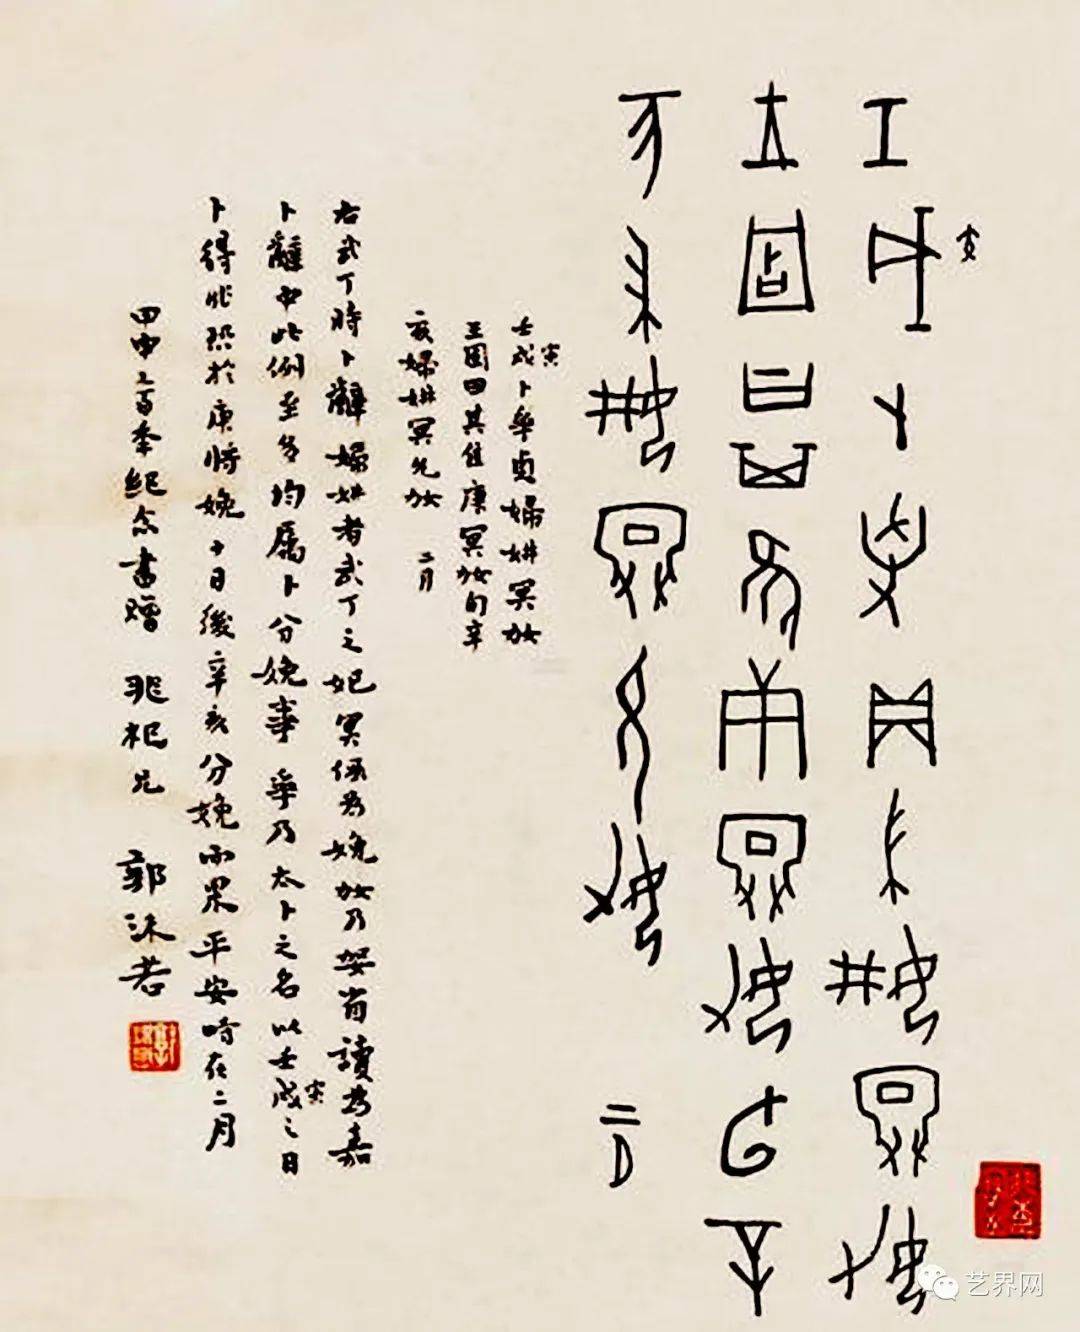 壬寅卜貞婦妌冥㚤
王固曰其隹庚冥㚤旬辛
亥婦妌冥允㚤 二月
壬戌寅卜貞婦妌冥㚤
王固曰其隹庚冥㚤旬辛
亥婦妌冥允㚤 二月
右武丁時卜辭婦妌者武丁之妃冥係為娩㚤乃省讀為嘉
卜辭中此例至多均屬卜分娩事 乃太卜之名以壬戌寅之日
卜得兆於庚時娩十日後辛亥分娩而果平安時在二月
甲申三百年紀念書贈 杞兄 郭沫若
艺界网